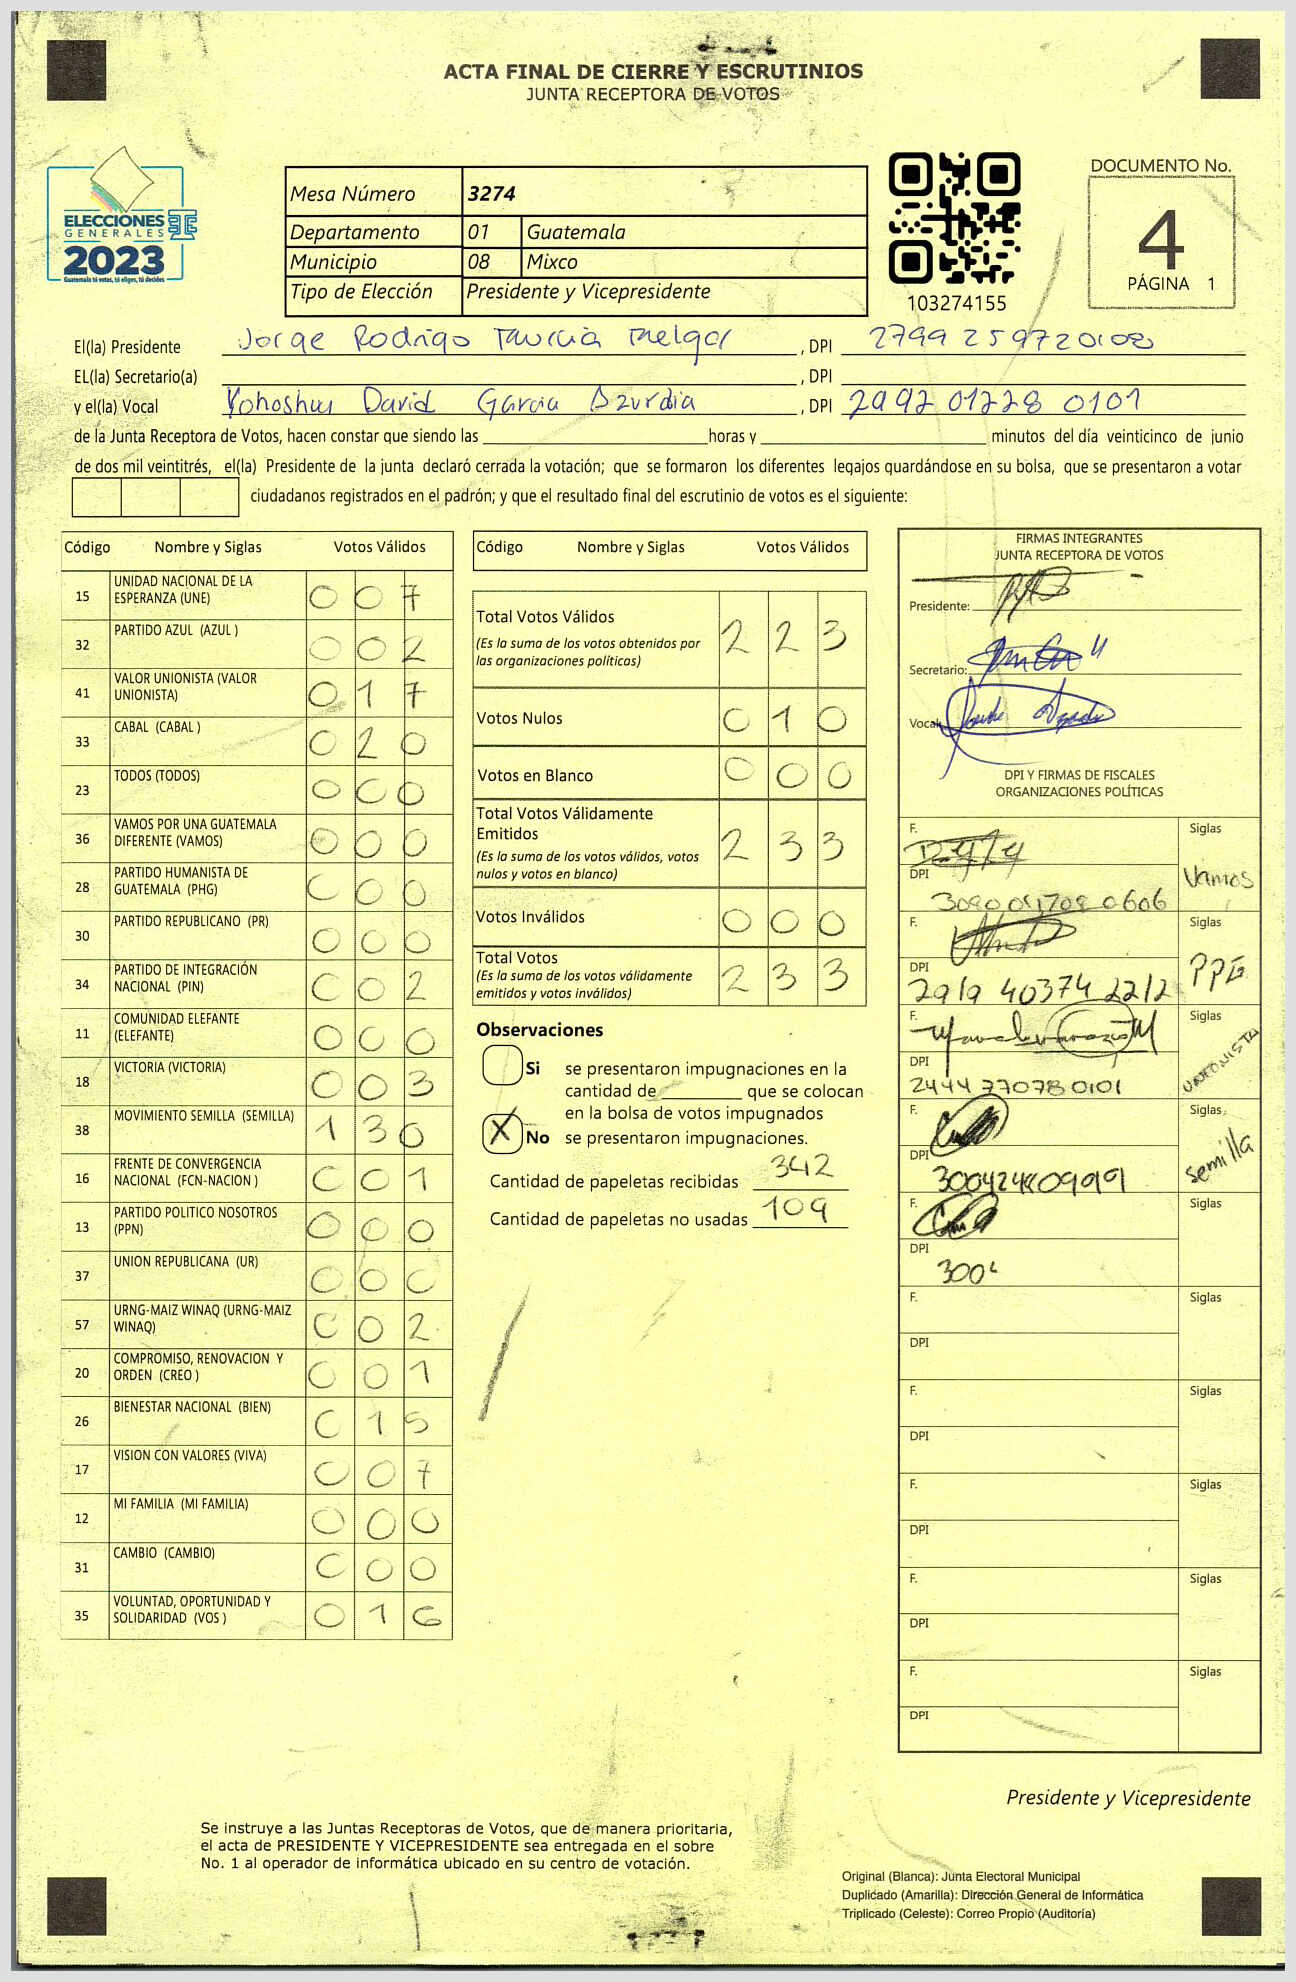 ACTA FINAL DE CIERRE Y ESCRUTINIOS
JUNTA RECEPTORA DE VOTOS
ELECCIONES
GENERALES
2023
Guatemala tú votas, tú eliges, tú decides
Mesa Número 3274
Departamento 01 Guatemala
Municipio 08 Mixco
Tipo de Elección Presidente y Vicepresidente
103274155
DOCUMENTO No.
4
PÁGINA 1
El(la) Presidente Jorge Rodrigo Murcia Melgar, DPI 2799 259720108
EL(la) Secretario(a) , DPI
y el(la) Vocal Yohoshua David Garcia Azurdia, DPI 2992 01228 0101
de la Junta Receptora de Votos, hacen constar que siendo las horas y minutos del día veinticinco de junio
de dos mil veintitrés, el(la) Presidente de la junta declaró cerrada la votación; que se formaron los diferentes legajos quardándose en su bolsa, que se presentaron a votar
ciudadanos registrados en el padrón; y que el resultado final del escrutinio de votos es el siguiente:
Código Nombre y Siglas Votos Válidos
15 UNIDAD NACIONAL DE LA ESPERANZA (UNE) 0 0 7
32 PARTIDO AZUL (AZUL ) 0 0 2
41 VALOR UNIONISTA (VALOR UNIONISTA) 0 1 7
33 CABAL (CABAL ) 0 2 0
23 TODOS (TODOS) 0 0 0
36 VAMOS POR UNA GUATEMALA DIFERENTE (VAMOS) 0 0 0
28 PARTIDO HUMANISTA DE GUATEMALA (PHG) 0 0 0
30 PARTIDO REPUBLICANO (PR) 0 0 0
34 PARTIDO DE INTEGRACIÓN NACIONAL (PIN) 0 0 2
11 COMUNIDAD ELEFANTE (ELEFANTE) 0 0 0
18 VICTORIA (VICTORIA) 0 0 3
38 MOVIMIENTO SEMILLA (SEMILLA) 1 3 0
16 FRENTE DE CONVERGENCIA NACIONAL (FCN-NACION ) 0 0 1
13 PARTIDO POLITICO NOSOTROS (PPN) 0 0 0
37 UNION REPUBLICANA (UR) 0 0 0
57 URNG-MAIZ WINAQ (URNG-MAIZ WINAQ) 0 0 2
20 COMPROMISO, RENOVACION Y ORDEN (CREO ) 0 0 1
26 BIENESTAR NACIONAL (BIEN) 0 1 5
17 VISION CON VALORES (VIVA) 0 0 7
12 MI FAMILIA (MI FAMILIA) 0 0 0
31 CAMBIO (CAMBIO) 0 0 0
35 VOLUNTAD, OPORTUNIDAD Y SOLIDARIDAD (VOS ) 0 1 6
Código Nombre y Siglas Votos Válidos
Total Votos Válidos 2 2 3
(Es la suma de los votos obtenidos por
las organizaciones políticas)
Votos Nulos 0 1 0
Votos en Blanco 0 0 0
Total Votos Válidamente
Emitidos 2 3 3
(Es la suma de los votos válidos, votos
nulos y votos en blanco)
Votos Inválidos 0 0 0
Total Votos 2 3 3
(Es la suma de los votos válidamente
emitidos y votos inválidos)
Observaciones
Si se presentaron impugnaciones en la
cantidad de que se colocan
en la bolsa de votos impugnados
X No se presentaron impugnaciones.
Cantidad de papeletas recibidas 342
Cantidad de papeletas no usadas 109
FIRMAS INTEGRANTES
JUNTA RECEPTORA DE VOTOS
Presidente:
Secretario:
Vocal:
DPI Y FIRMAS DE FISCALES
ORGANIZACIONES POLÍTICAS
F. Siglas
DPI Vamos
F. Siglas
DPI 2919 40374 2212 PPG
F. Siglas
DPI 2444 77078 0101 UNIONISTA
F. Siglas
DPI 300424809999 semilla
F. Siglas
DPI 300
F. Siglas
DPI
F. Siglas
DPI
F. Siglas
DPI
F. Siglas
DPI
F. Siglas
DPI
Presidente y Vicepresidente
Se instruye a las Juntas Receptoras de Votos, que de manera prioritaria,
el acta de PRESIDENTE Y VICEPRESIDENTE sea entregada en el sobre
No. 1 al operador de informática ubicado en su centro de votación.
Original (Blanca): Junta Electoral Municipal
Duplicado (Amarilla): Dirección General de Informática
Triplicado (Celeste): Correo Propio (Auditoría)